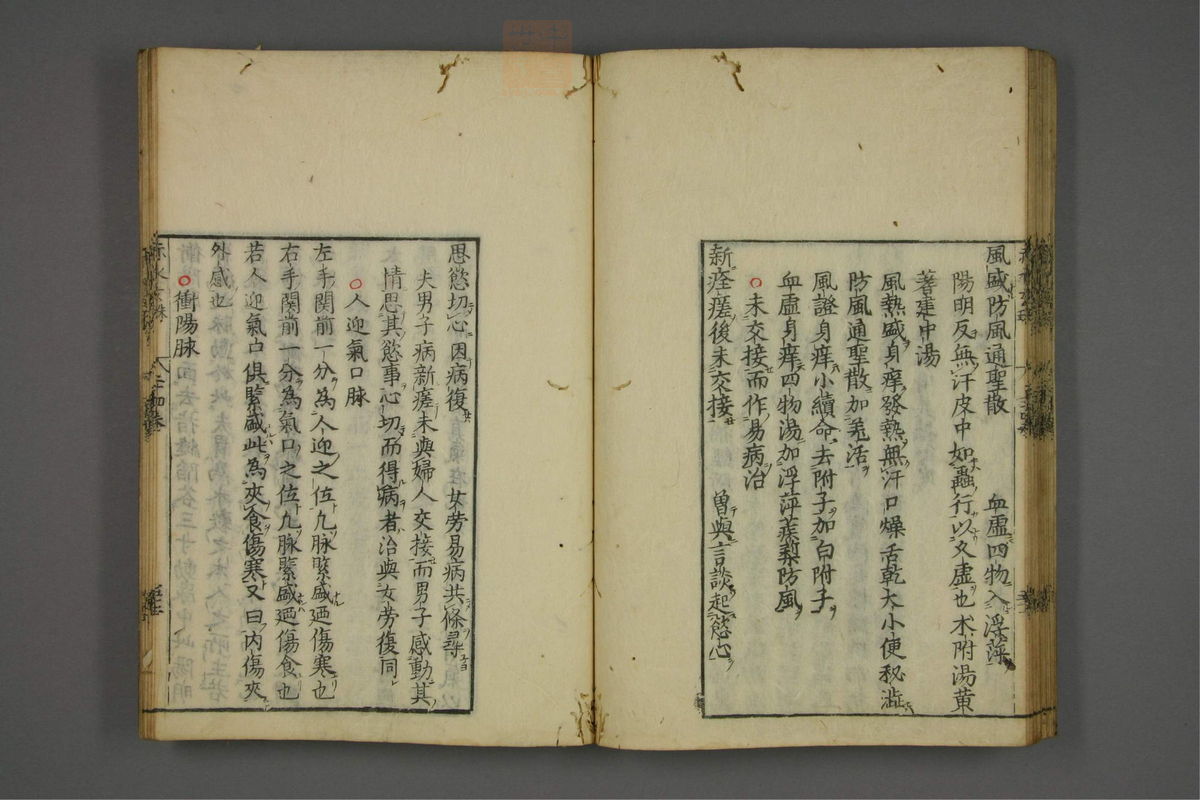 風盛防風通聖散 血虛四物入浮萍
陽明反無汗皮中如蟲行以久虛也朮附湯黄
蓍建中湯
風熱盛身痒發熱無汗口燥舌乾大小便秘澁
防風通聖散加羗活
風證身痒小續命去附子加白附子
血虛身痒四物湯加浮萍蒺䔧防風
○未交接而作易病治
新痊瘥後未交接 曽與言談起慾心
思慾切心因病復 女勞易病共條尋
夫男子病新瘥未與婦人交接而男子感動其
情思其慾事心切而得病者治與女勞復同
○人迎氣口脉
左手関前一分為人迎之位凢脉緊盛廼傷寒也
右手関前一分為氣口之位凢脉緊盛廼傷食也
若人迎氣口俱緊盛此為夾食傷寒又曰内傷夾
外感也
○衝陽脉